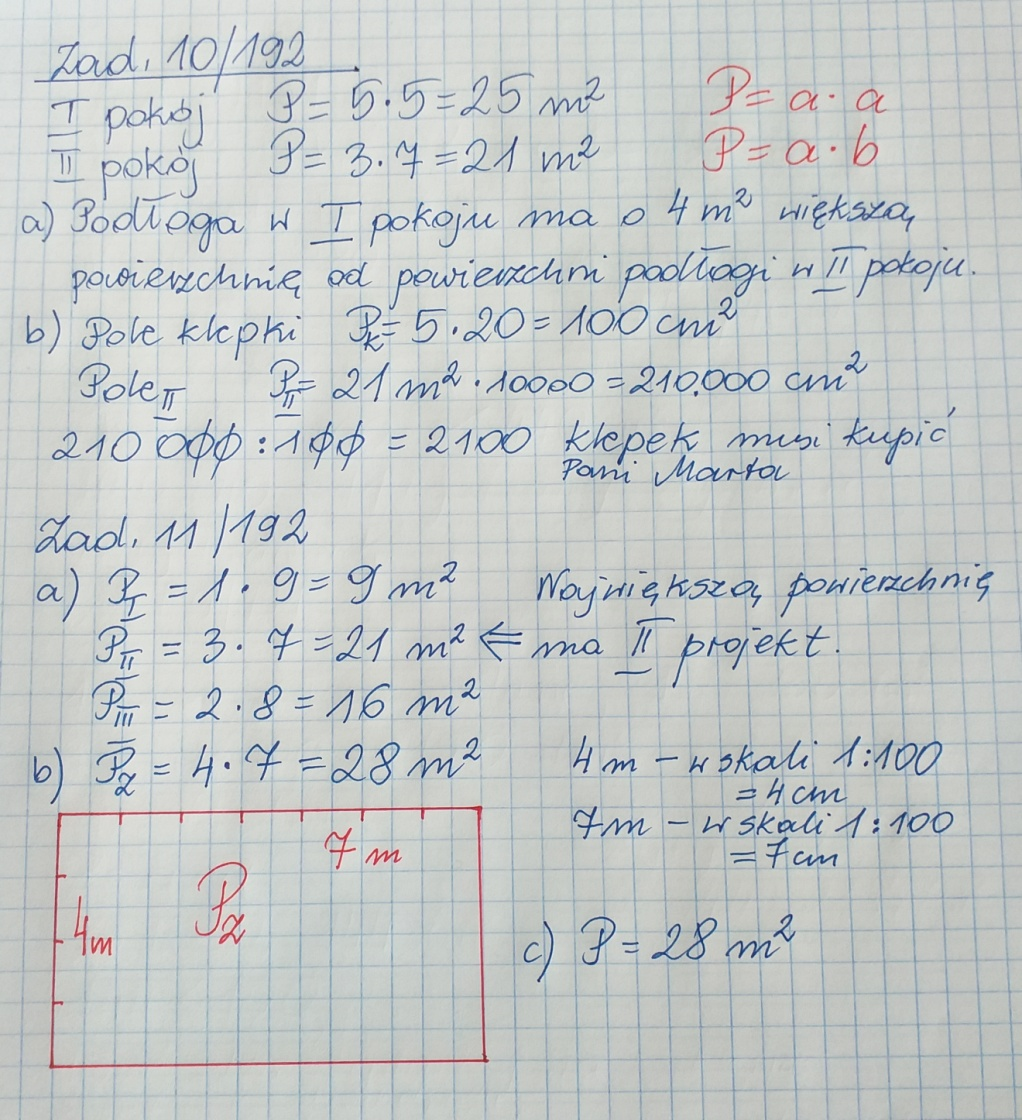 Zad. 10/192
I pokój P = 5·5 = 25 m² P = a·a
II pokój P = 3·7 = 21 m² P = a·b
a) Podłoga w I pokoju ma o 4 m² większą
powierzchnię od powierzchni podłogi w II pokoju.
b) Pole klepki Pk = 5·20 = 100 cm²
Pole II P II = 21 m² · 10000 = 210.000 cm²
210 000 : 100 = 2100 klepek musi kupić
Pani Marta
Zad. 11/192
a) P I = 1·9 = 9 m² Największą powierzchnię
P II = 3·7 = 21 m² ⇐ ma II projekt.
P III = 2·8 = 16 m²
b) Pz = 4·7 = 28 m² 4 m – w skali 1:100
= 4 cm
7 m – w skali 1:100
= 7 cm
7 m
Pz
4 m
c) P = 28 m²